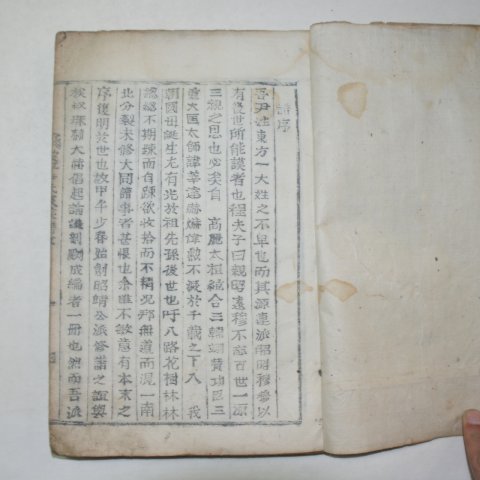 譜序
吾尹姓東方一大姓之不卑也而其源遠派昭昭穆參以
有後世所能謨者也程夫子曰親昭遠穆不忘百世一源
三視之思也必矣自 高麗太祖統合三韓翊贊功臣三
重大匡太師諱莘達赫赫偉勳不泯於千載之下入 我
朝國母誕生尤有光於祖先孫後世也吁八路花樹林林
總總不期疎而自疎欲收拾而不精况那無道而混一南
北分裂未修大同譜事者甚恨也余雖不敏意有本末之
序復明於世也故甲午少春始朝昭靖公派修譜之誼與
族叔 大 倡起論議剞劂成編者一冊也然而吾派